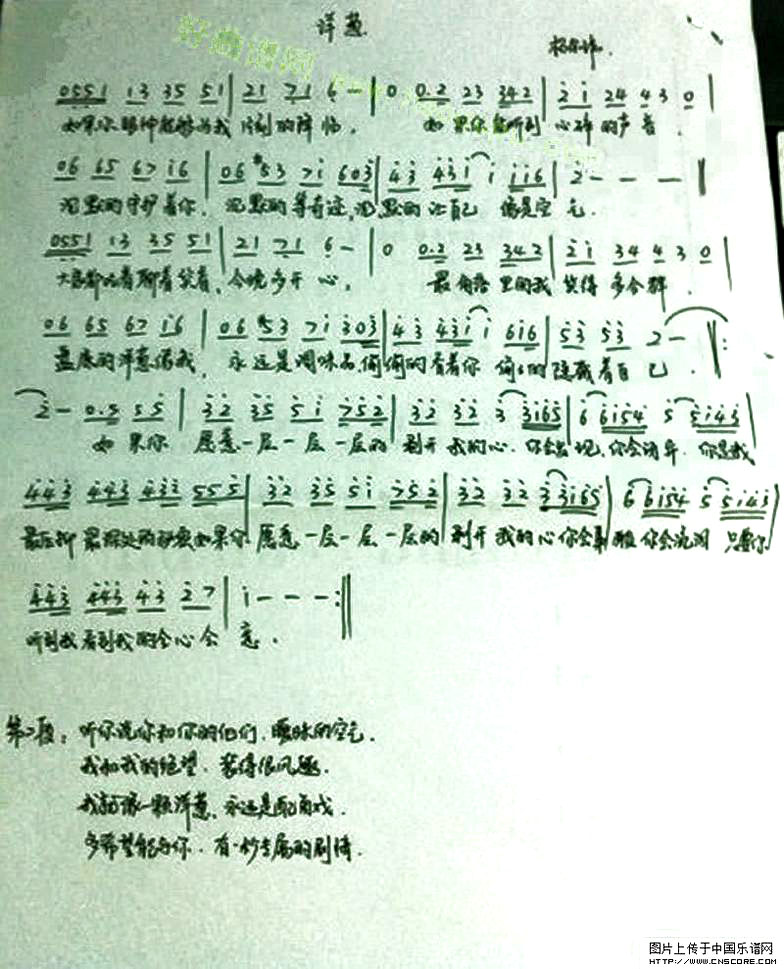 洋葱
好曲谱网
杨宗纬.
0551 13 35 51 | 21 71 6 - | 0 0.2 23 342 | 2̇ i̇ 24 4 3 0 |
如果你眼神能够为我 片刻的降临. 如果你能听到 心碎的声音.
06 65 67 i̇6 | 06 #53 7i̇ 603̇ | 4̇3̇ 4̇3̇i̇ i̇ i̇i̇6 | 2̇ - - - ‖
沉默的守护着你. 沉默的等奇迹, 沉默的让自己 像是空气.
0551 13 35 51 | 21 71 6 - | 0 0.2 23 342 | 2̇i̇ 34 4 3 0 |
大家都吃着聊着笑着, 今晚多开心. 最角落里的我 笑得多合群.
06 65 67 i̇6 | 06 #53 7i̇ 3̇03̇ | 4̇3̇ 4̇3̇i̇ i̇ 6i̇6 | 5̇3̇ 5̇3̇ 2 - ‖:
盘底的洋葱像我, 永远是调味品, 偷偷的看着你 偷偷的隐藏着自己.
2̇ - 0.5 55̇ | 3̇2̇ 3̇5̇ 5̇ i̇ 7̇5̇2̇ | 3̇2̇ 3̇2̇ 3̇ 3̇i̇65̇ | 6 6i̇54 5 5i̇4̇3̇ |
如果你 愿意一层一层一层的 剥开我的心. 你会发现, 你会讶异. 你是我
4̇4̇3̇ 4̇4̇3̇ 4̇3̇2̇ 555̇ | 3̇2 3̇5 5i̇ 7̇52̇ | 3̇2 3̇2 3̇ 3̇i̇65 | 6 6i̇54 5 5i̇4̇3̇ |
最压抑 最深处的秘密如果你 愿意一层一层一层的 剥开我的心你会鼻酸 你会流泪 只要你
4̇4̇3̇ 4̇4̇3̇ 4̇3̇ 2̇7 | i̇ - - - :‖
听到我看到我的全心全意.
第二段: 听你说你和你的他们, 暧昧的空气.
我和我的绝望. 装得很风趣.
我就像一颗洋葱. 永远是配角戏.
多希望能与你. 有一秒专属的剧情.
图片上传于中国乐谱网
HTTP://WWW.CNSCORE.COM